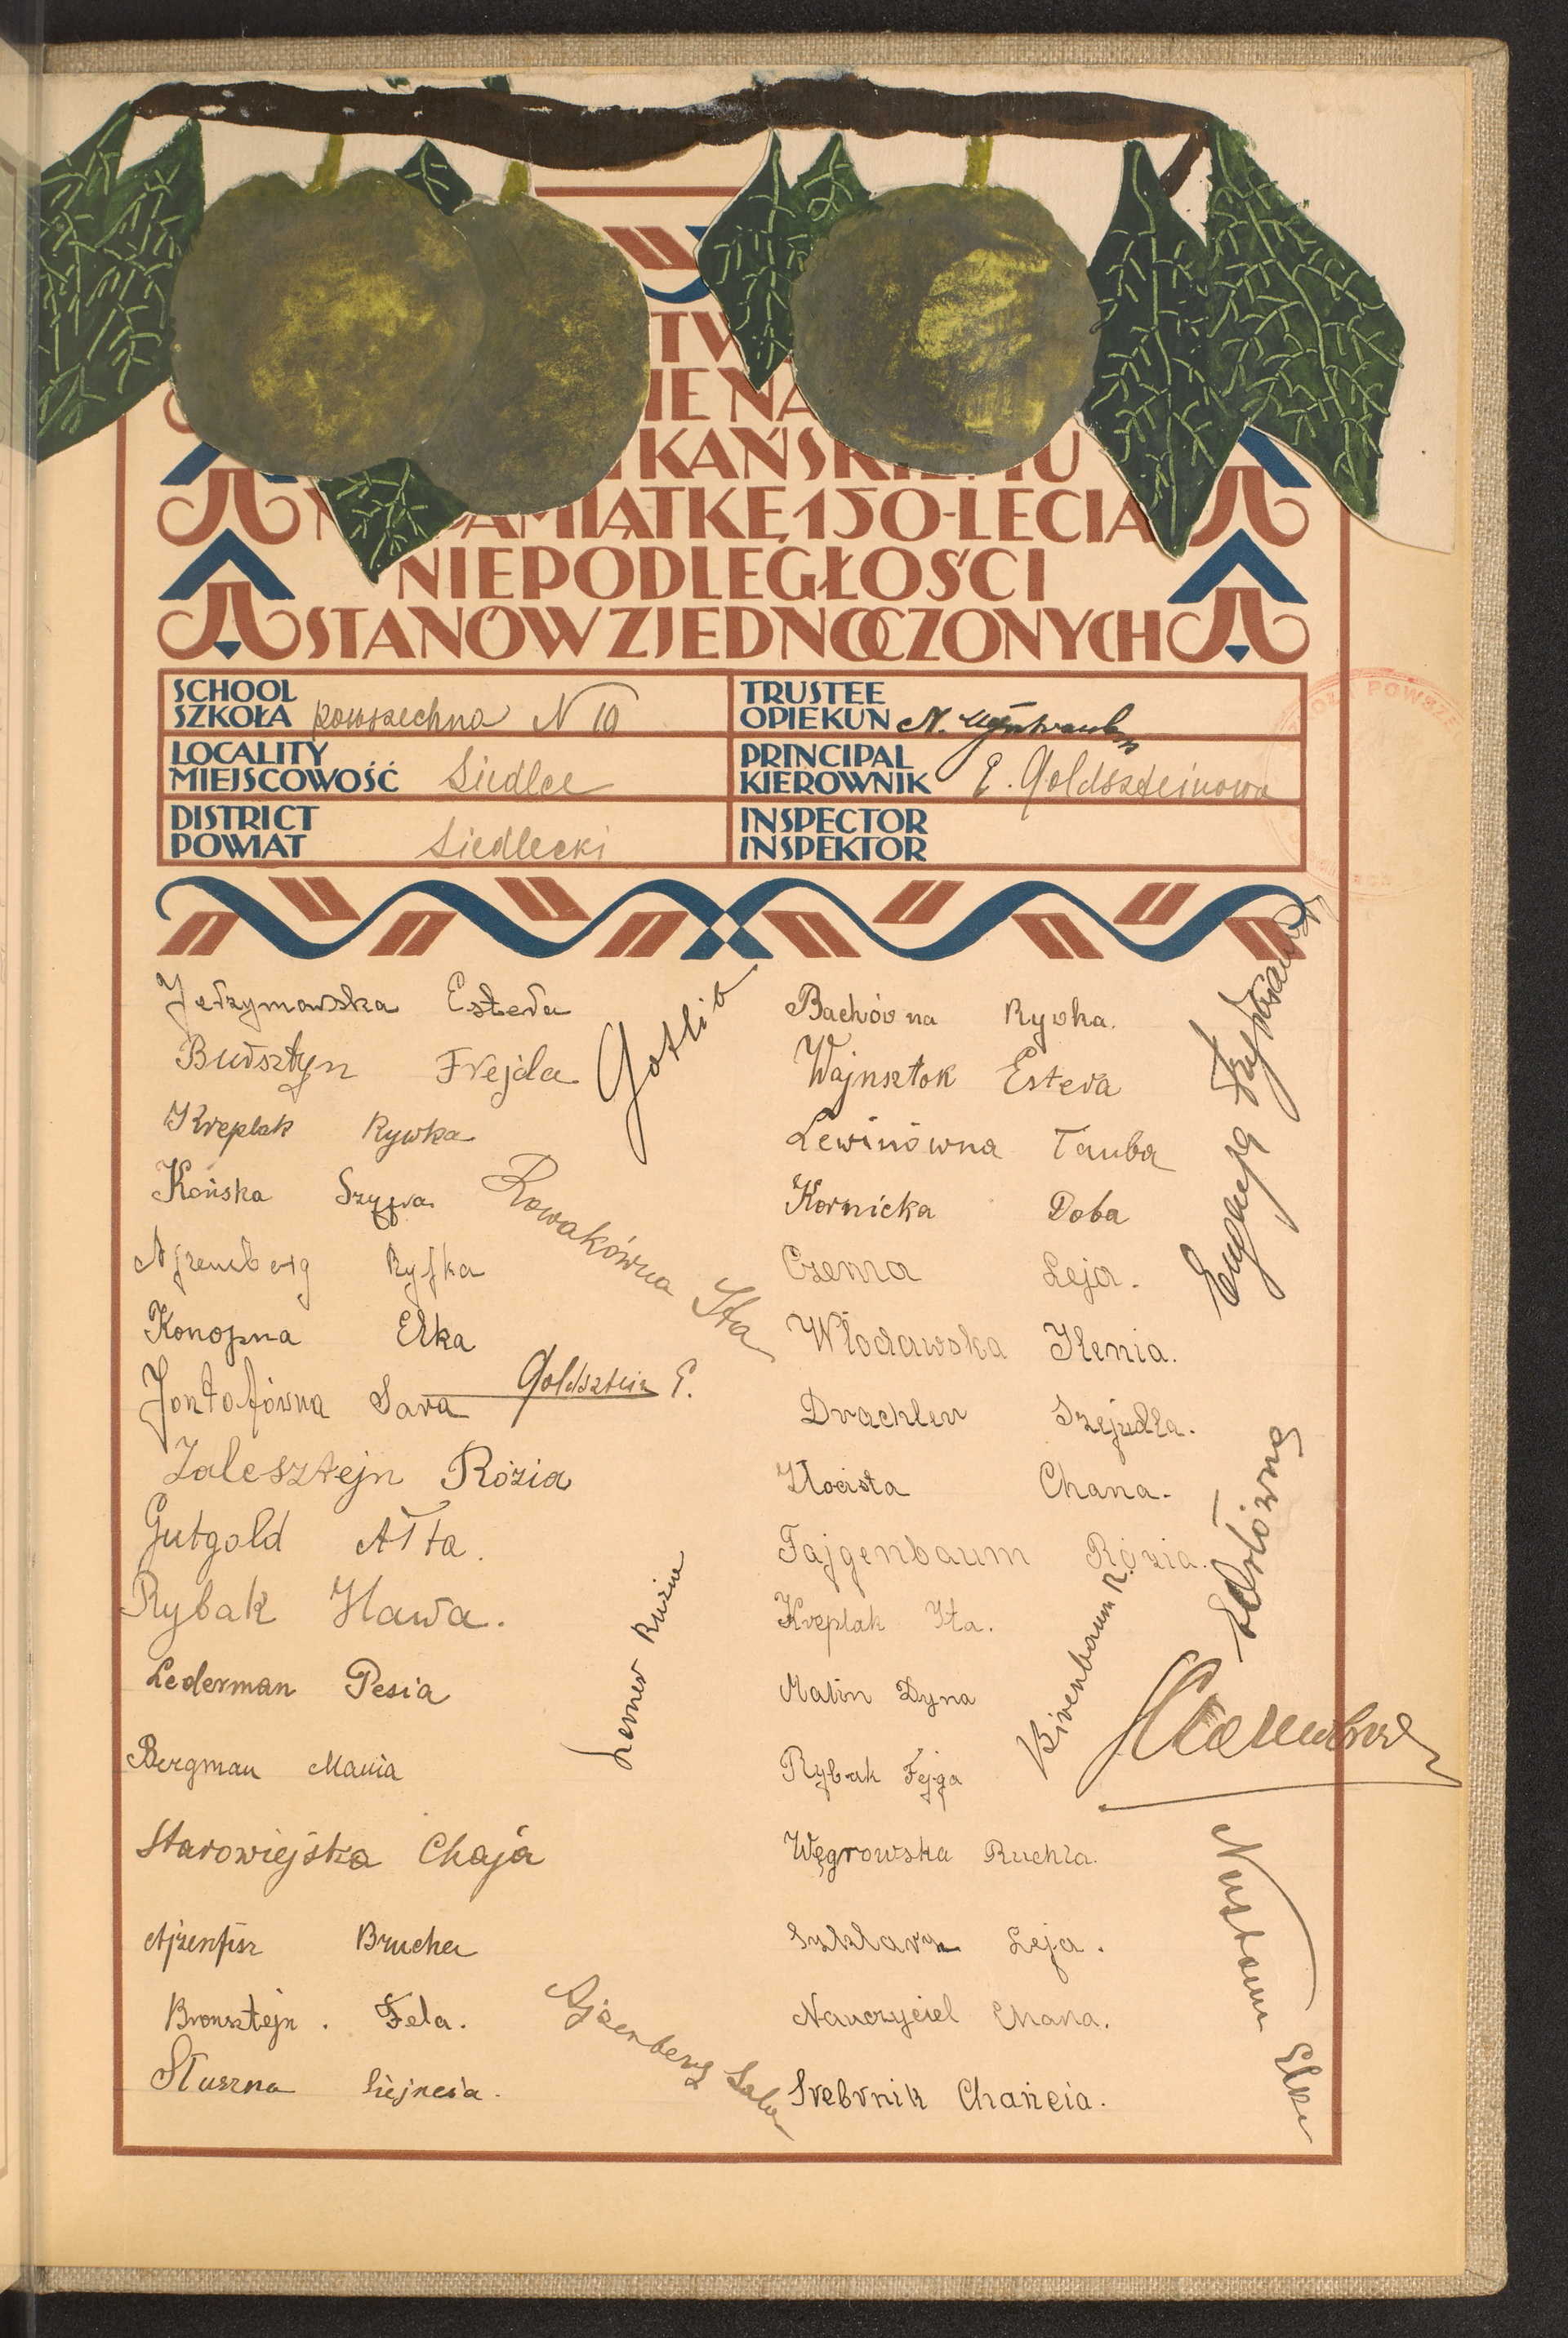 NA
PAMIĄTKĘ 150-LECIA
NIEPODLEGŁOŚCI
STANÓW ZJEDNOCZONYCH
SCHOOL
SZKOŁA powszechna N 10
TRUSTEE
OPIEKUN
LOCALITY
MIEJSCOWOŚĆ Siedlce
PRINCIPAL
KIEROWNIK E. Goldszteinowa
DISTRICT
POWIAT Siedlecki
INSPECTOR
INSPEKTOR
Jerzymowska Estera
Bursztyn Frejda
Kreplak Rywka
Końska
Ajzenberg Ryfka
Konopna Elka
Jontofówna Sara
Zalesztejn Rózia
Gutgold Ałta.
Rybak Hawa.
Lederman Pesia
Bergman Mania
Starowiejska Chaja
Ajzenfisz Brucha
Bronsztejn. Fela.
Słuszna
Gotlib
Rowakówna Ita
Goldsztein E.
Lerner Ruzia
Ajzenberg Sala
Bachówna Rywka.
Wajnsztok Estera
Lewinówna Tauba
Kornicka Doba
Czerna Leja.
Włodawska Henia.
Drachler Szejdla.
Złocista Chana.
Fajgenbaum Rózia.
Kreplak Ita.
Malin Dyna
Rybak Fejga
Węgrowska Ruchla.
Szklarz Leja.
Nauczyciel Chana.
Srebrnik Chańcia.
Birenbaum R.